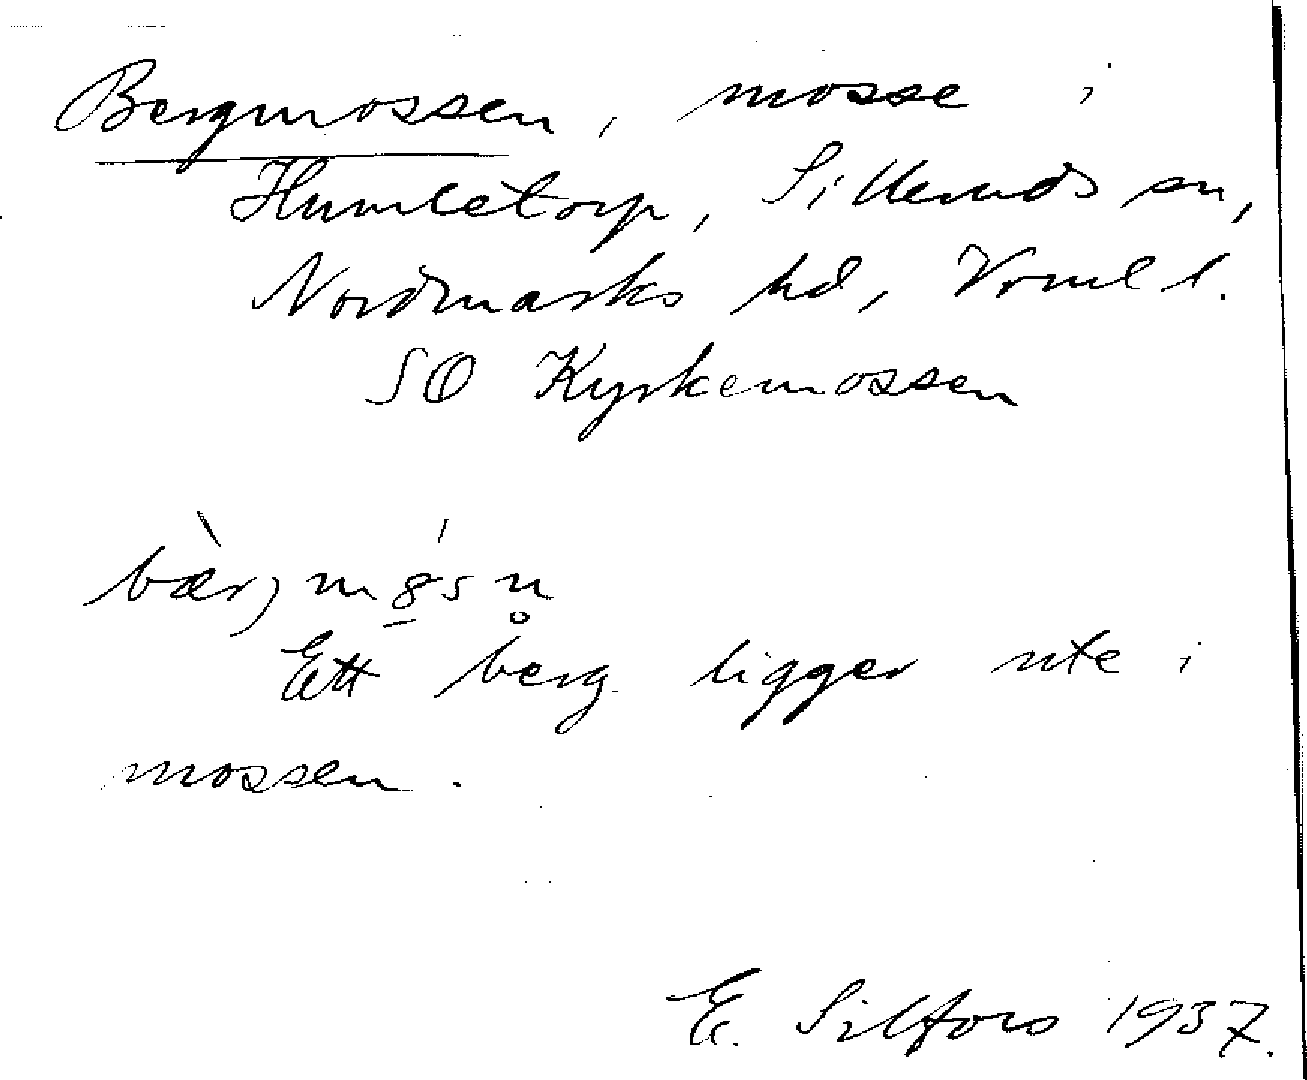 Bergmossen, mosse i
Humletorp, Silleruds sn,
Nordmarks hd, Vrml l.
SO Kyrkemossen
Ett berg ligger ute i
mossen.
E. Silfors 1937.